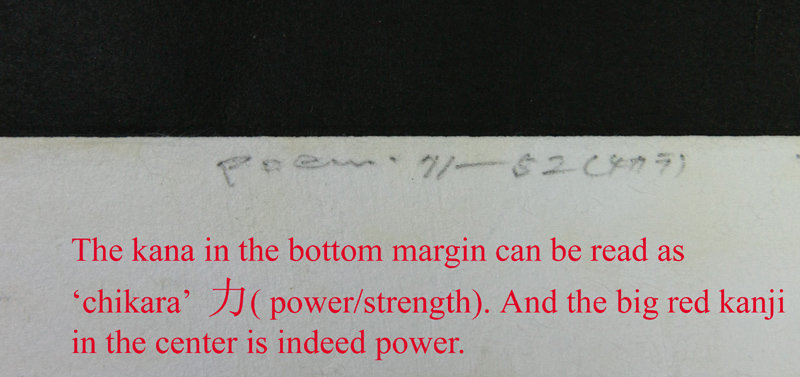 Poem. 71—52(チカラ)
The kana in the bottom margin can be read as
‘chikara’ 力( power/strength). And the big red kanji
in the center is indeed power.